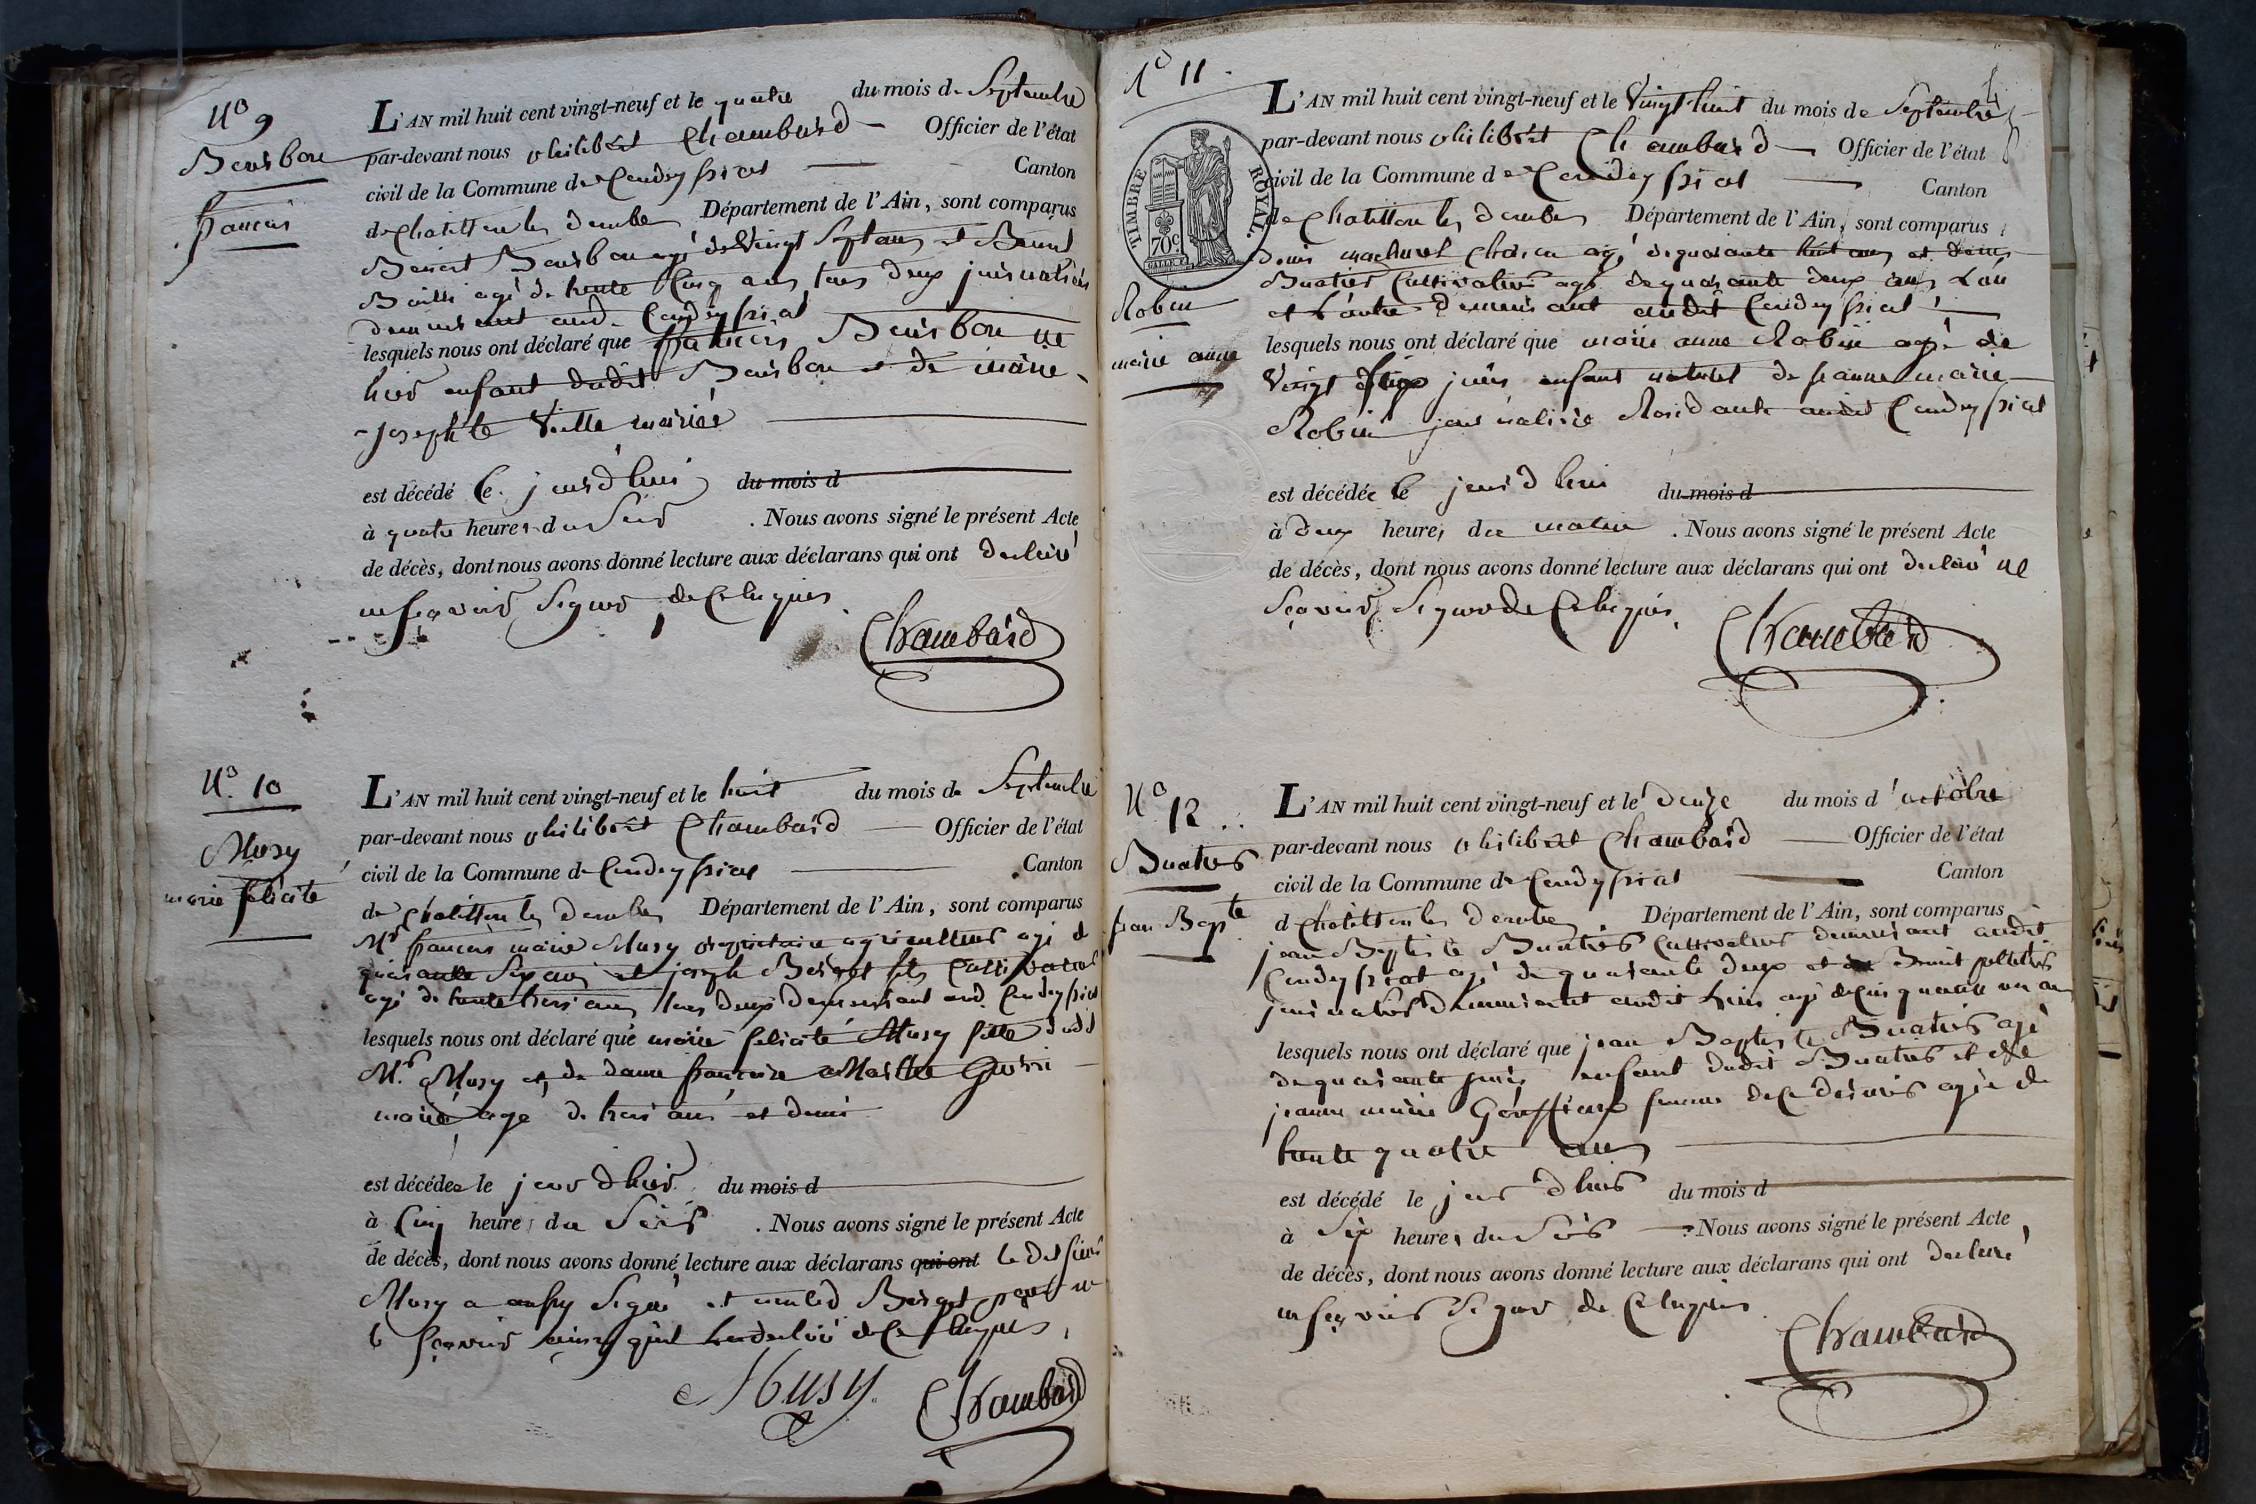 N° 9
Bourbon
francois
L'AN mil huit cent vingt-neuf et le quatre du mois de Septembre
par-devant nous philibert Chambard Officier de l'état
civil de la Commune de Condeyssiat Canton
de Chatillon les dombes Département de l'Ain, sont comparus
Benoit Bourbon agé de Vingt Sept ans et Benoit
agé de trente Cinq ans tous deux journaliers
demeurant aud. Condeyssiat
lesquels nous ont déclaré que francois Bourbon né
hier enfant dudit Bourbon et de marie
josephte mariés
est décédé le jourd'hui du mois d
à quatre heures du Soir . Nous avons signé le présent Acte
de décès, dont nous avons donné lecture aux déclarans qui ont declaré
ne Sçavoir Signer de Ce Enquis
Chambard
N° 10
Musy
marie felicité
L'AN mil huit cent vingt-neuf et le huit du mois de Septembre
par-devant nous philibert Chambard Officier de l'état
civil de la Commune de Condeyssiat Canton
de Chatillon les dombes Département de l'Ain, sont comparus
Mr francois marie Musy proprietaire agriculteur agé de
quarante Six ans et joseph Berget fils Cultivateur
agé de trente trois ans tous deux demeurant aud. Condeyssiat
lesquels nous ont déclaré que marie felicité Musy fille dudt
Mr Musy et de dame francoise
mariés, agé de trois ans et demi
est décédée le jour d'hier du mois d
à Cinq heures du Soir . Nous avons signé le présent Acte
de décès, dont nous avons donné lecture aux déclarans qui ont le dit sieur
Musy a aussy Signé et non led Berget pour ne
le Sçavoir ainsy qu'il l'a declaré de Ce Enquis
Musy Chambard
N° 11
4
TIMBRE ROYAL
70c
Robin
marie anne
L'AN mil huit cent vingt-neuf et le Vingt huit du mois de Septembre
par-devant nous philibert Chambard Officier de l'état
civil de la Commune de Condeyssiat Canton
de Chatillon les dombes Département de l'Ain, sont comparus
denis agé de quarante huit ans et denis
Buatier Cultivateur agé de quarante deux ans L'un
et L'autre demeurant audit Condeyssiat
lesquels nous ont déclaré que marie anne Robin agé de
Vingt jours enfant naturel de jeanne marie
Robin journaliere Residante audit Condeyssiat
est décédée le jourd'hui du mois d
à deux heures du matin . Nous avons signé le présent Acte
de décès, dont nous avons donné lecture aux déclarans qui ont declaré ne
Sçavoir Signer de Ce Enquis
Chambard
N° 12
Buatier
jean Bapte
L'AN mil huit cent vingt-neuf et le douze du mois d'octobre
par-devant nous philibert Chambard Officier de l'état
civil de la Commune de Condeyssiat Canton
de Chatillon les dombes Département de l'Ain, sont comparus
jean Baptiste Buatier Cultivateur demeurant audit
Condeyssiat agé de quarante deux et Benoit
journalier demeurant audit lieu agé de Cinquante un an
lesquels nous ont déclaré que jean Baptiste Buatier agé
de quarante jours enfant dudit Buatier et de
jeanne marie femme de Ce dernier agée de
trente quatre ans
est décédé le jour d'hier du mois d
à Six heures du Soir Nous avons signé le présent Acte
de décès, dont nous avons donné lecture aux déclarans qui ont declaré
ne Sçavoir Signer de Ce Enquis
Chambard